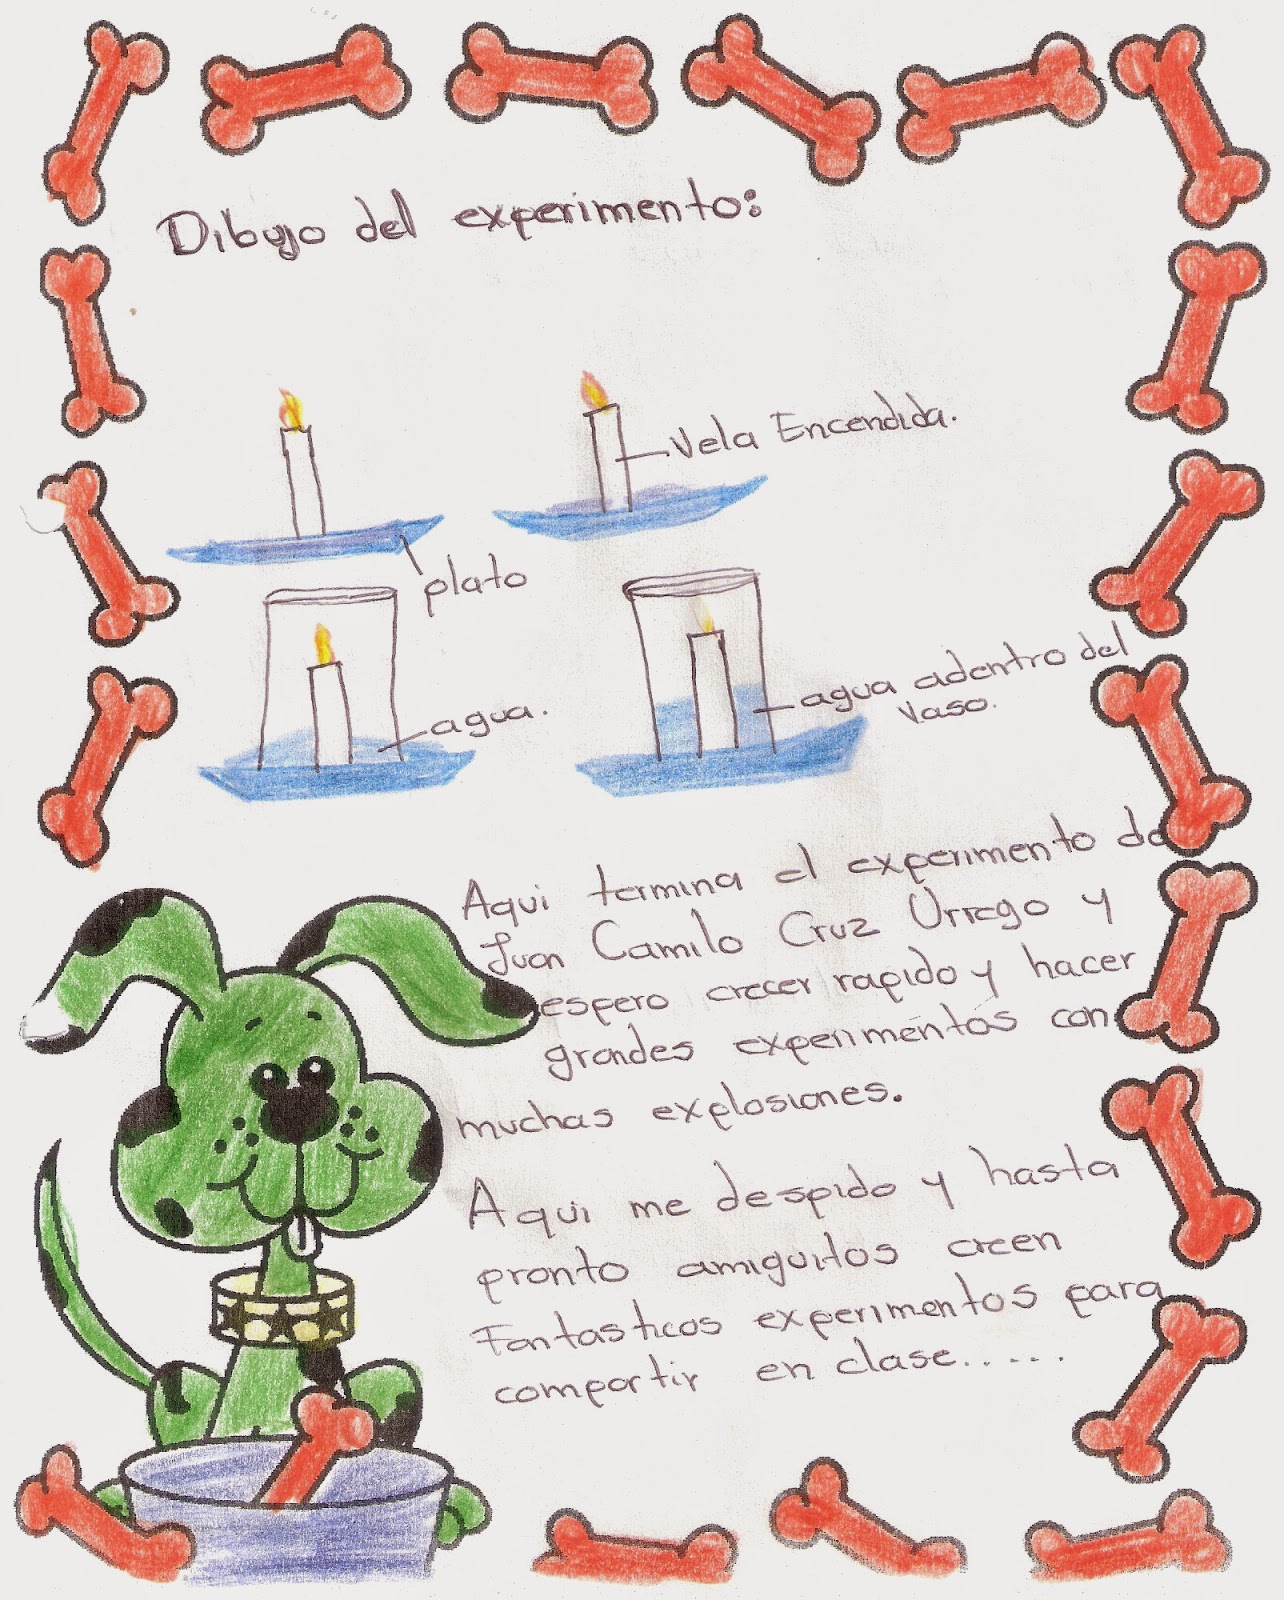 Dibujo del experimento:
Vela Encendida.
plato
agua.
agua adentro del
vaso.
Aqui termina el experimento de
Juan Camilo Cruz Urrego y
espero crecer rapido y hacer
grandes experimentos con
muchas explosiones.
Aqui me despido y hasta
pronto amiguitos creen
Fantasticos experimentos para
compartir en clase.....